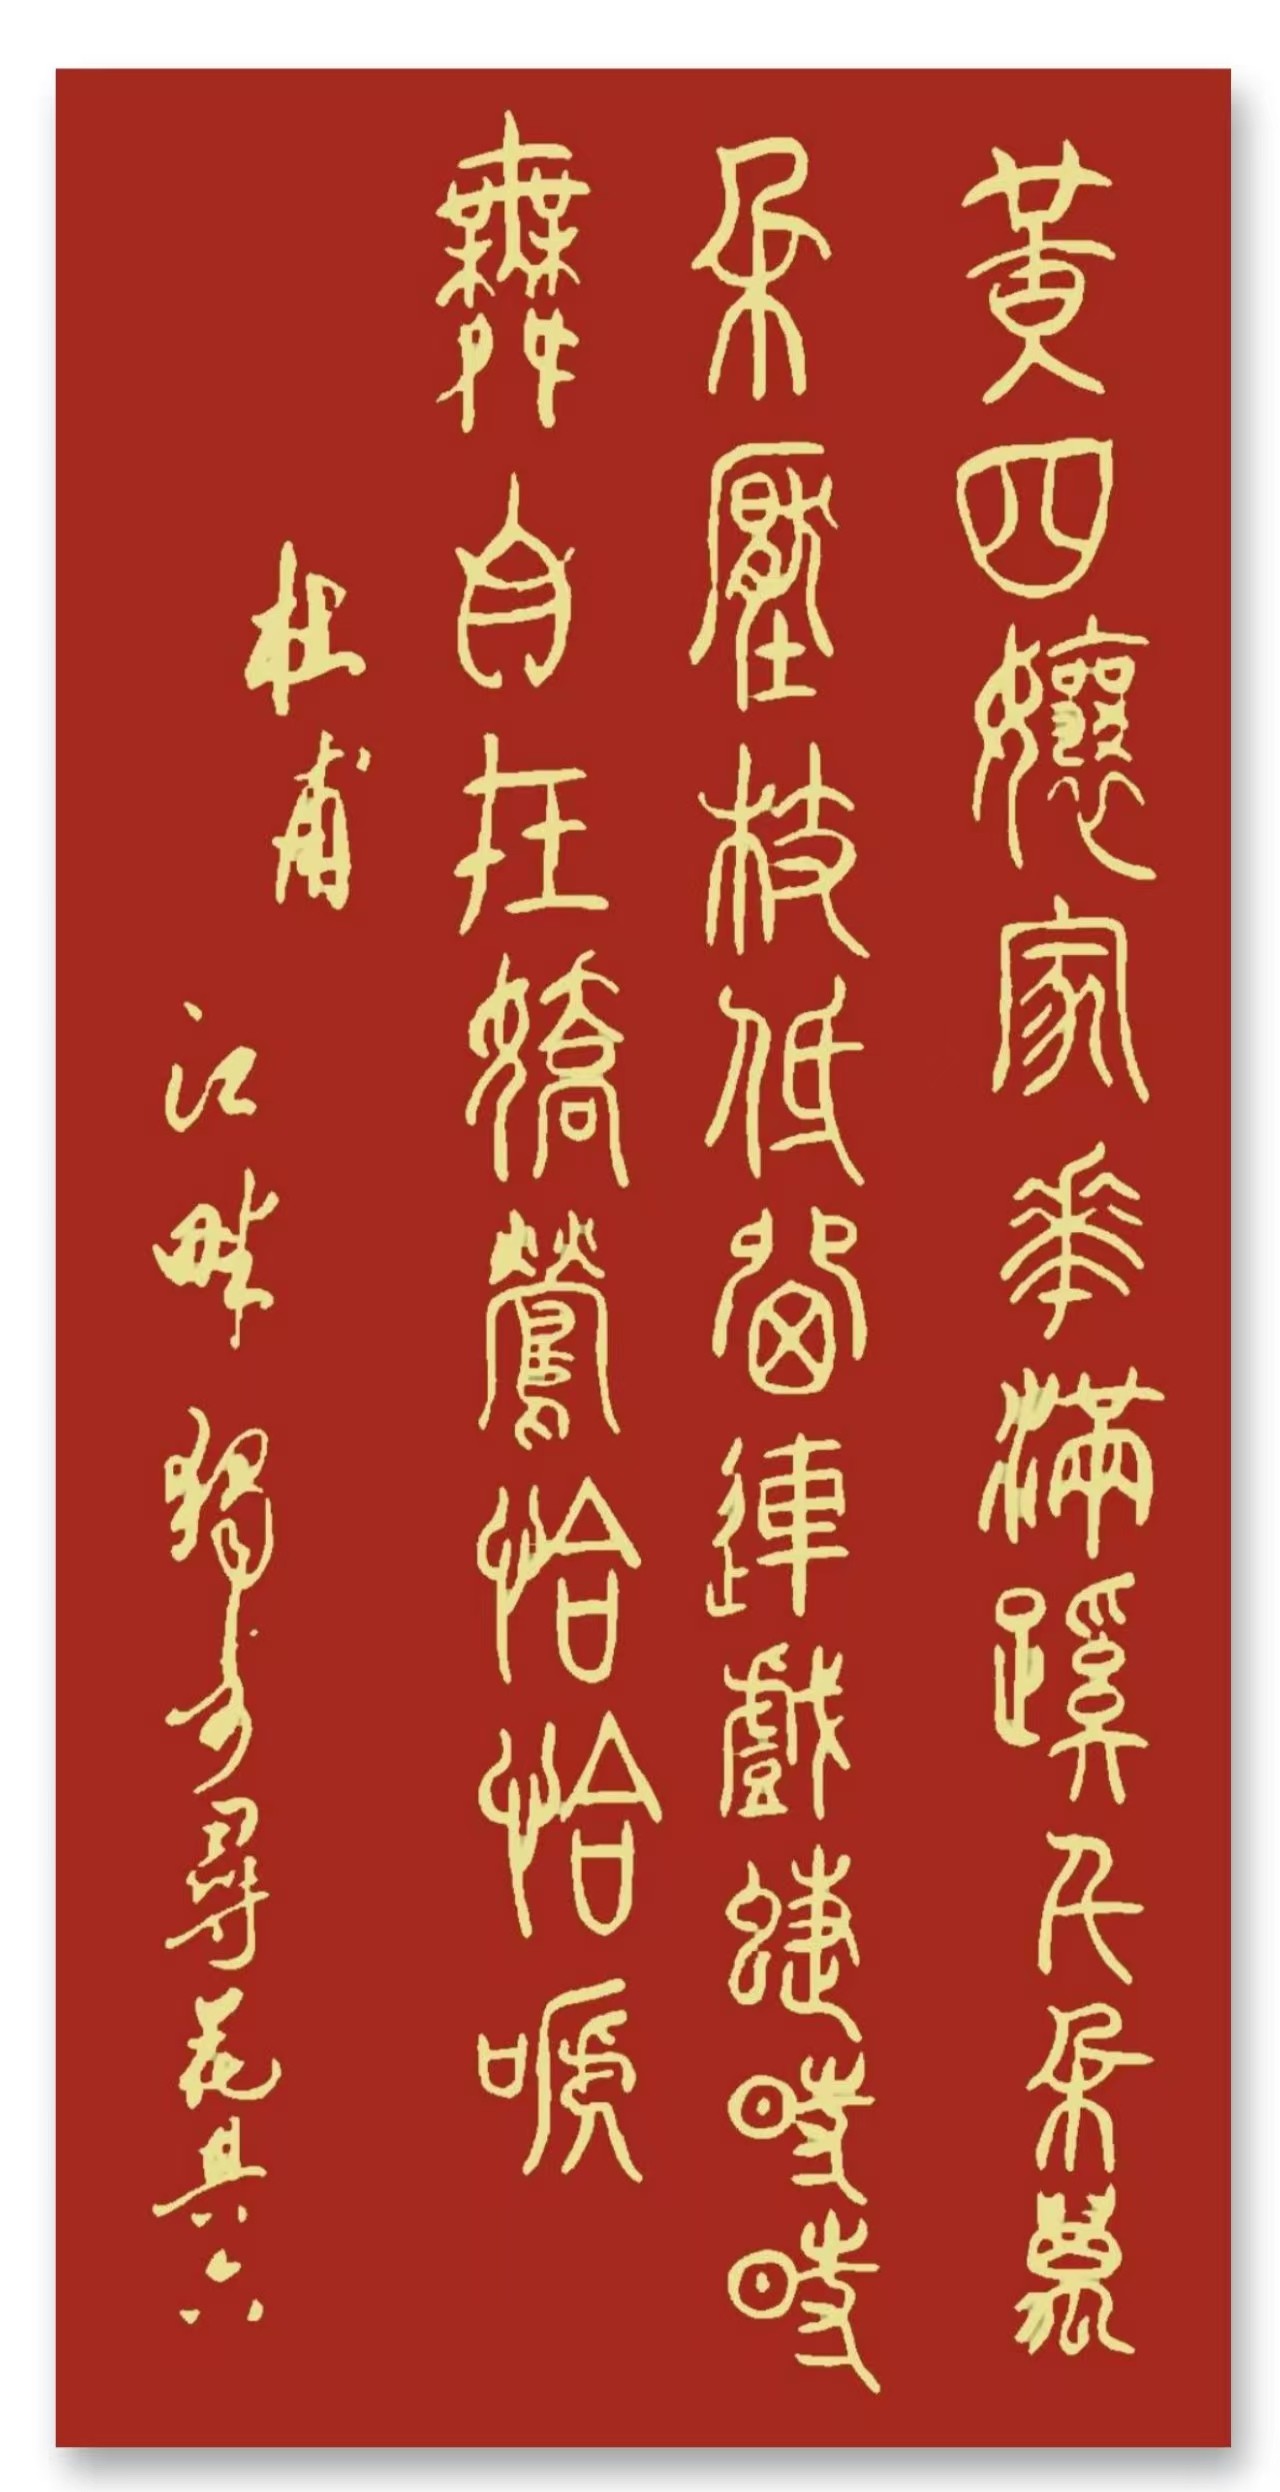 黃四孃家華滿蹊千朵萬
朵壓枝低留連戲蝶時時
舞自在嬌鶯恰恰嗁
杜甫
江畔獨步尋花其六